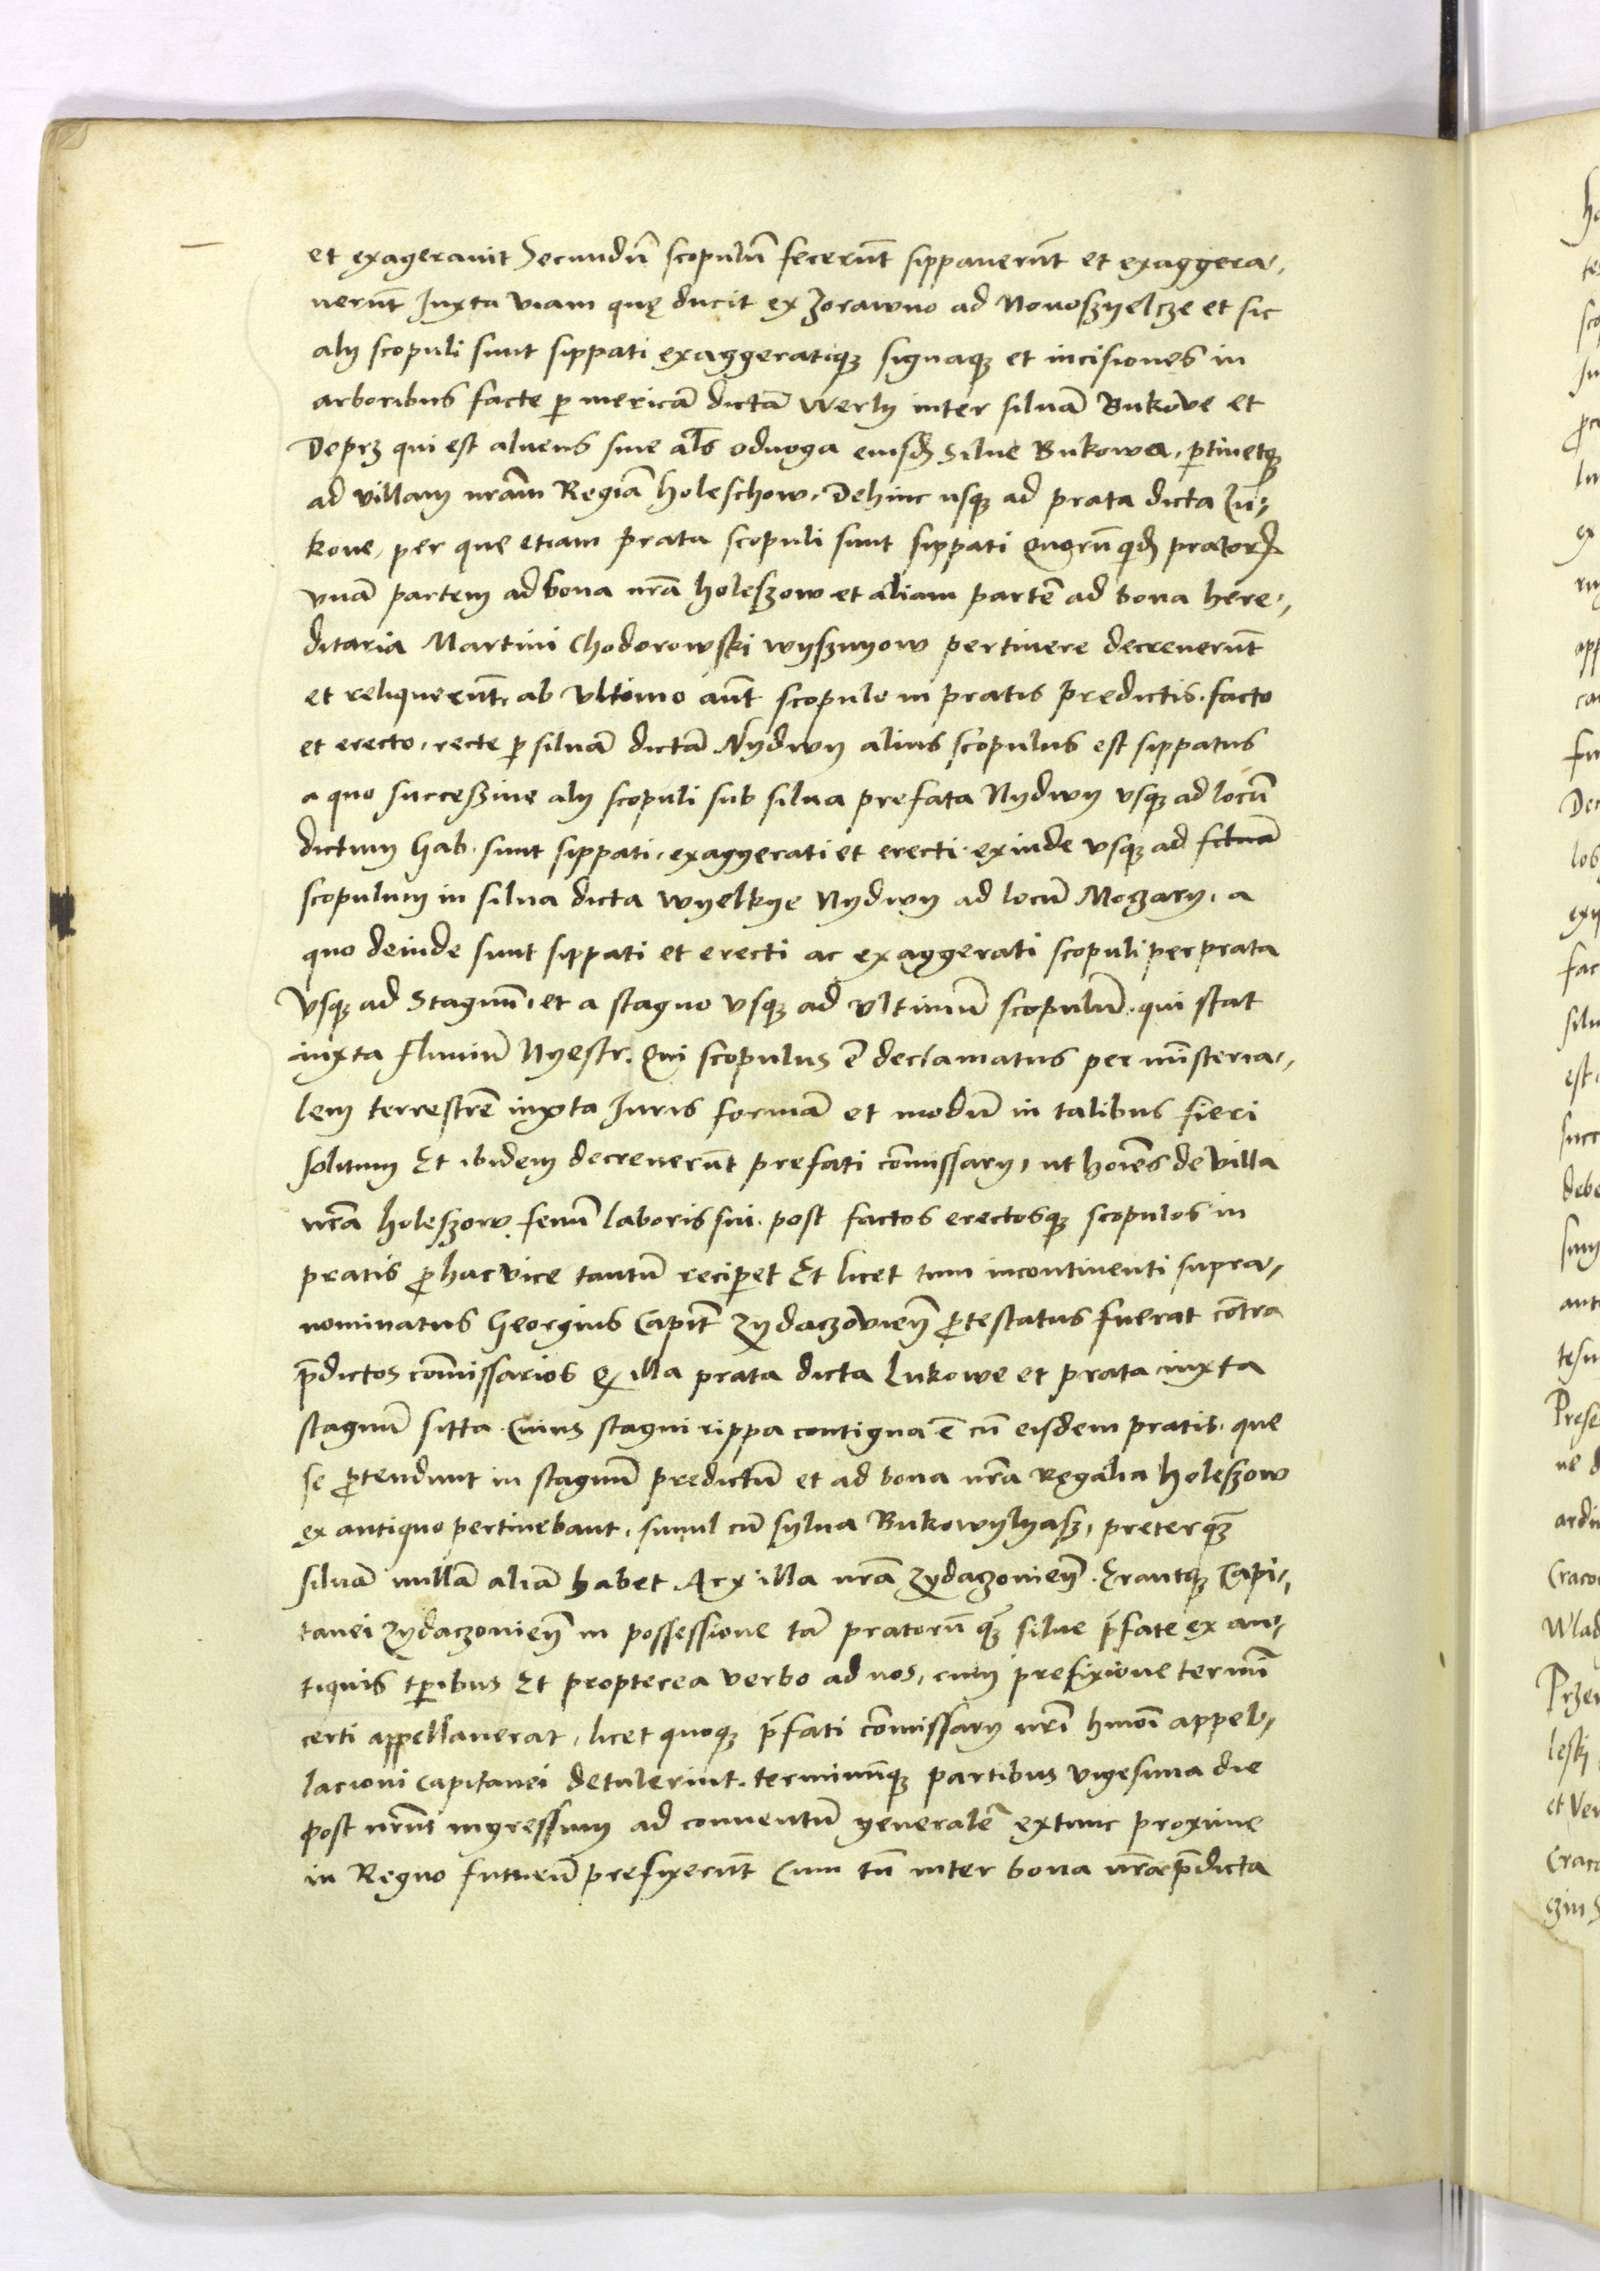 et exageravit Secundū scopulū fecerūt sippauerūt et exaggera,
uerūt Iuxta viam quę ducit ex Zorawno ad Nouoszyelcze et sic
alij scopuli sunt sippati exaggeratiqꝫ signaqꝫ et incisiones in
arboribus facte ꝑ mericā dictā werly inter siluā Bukowe et
Deprz qui est alueus siue al̄s odnoga eiusd̄ Silue Bukowa, ꝑtinetqꝫ
ad villam nr̄am Regiā holeschow, Dehinc usqꝫ ad prata dicta Lu-
kowe, per que etiam prata scopuli sunt sippati Quorū qd̄ pratorꝝ
vnā partem ad bona nr̄a holeszow et aliam partē ad bona here,
ditaria Martini Chodorowski wysznyow pertinere decreuerūt
et reliquerūt, ab vltimo aūt scopulo in pratis predictis facto
et erecto, recte ꝑ siluā dictā Nydwy alius scopulus est sippatus
a quo successiue alij scopuli sub silua prefata Nydwy vsqꝫ ad locū
dictum hab. sunt sippati, exaggerati et erecti. exinde vsqꝫ ad
scopulum in silua dicta wyelkye Nydwy ad locū Mozary, a
quo deinde sunt sippati et erecti ac exaggerati scopuli per prata
Vsqꝫ ad Stagnū, et a stagno vsqꝫ ad vltimū scopulū. qui stat
iuxta fluuiū Nyestr. Qui scopulus ē declamatus per mīsteria-
lem terrestrē iuxta Iuris formā et modū in talibus fieri
solitum Et ibidem decreuerūt prefati cōmissarij, ut hoīes de villa
nr̄a holeszow fenū laboris sui. post factos erectosqꝫ scopulos in
pratis ꝓ hac vice tantū reciꝑet Et licet tum incontinenti supra-
nominatus Georgius Capit̄ Zydaczowieñ ꝓtestatus fuerat cōtra
p̄dictos cōmissarios ꝙ illa prata dicta Lukowe et prata iuxta
stagnū sitta. Cuius stagni rippa contigua ē cū eisdem pratis. que
se ꝓtendunt in stagnū predictū et ad bona nr̄a Regalia holeszow
ex antiquo pertinebant, simul cū sylua Bukowylyasz, preterqꝫ
siluā nullā aliā habet Arx illa nr̄a Zydaczouieñ. Erantqꝫ Capi-
tanei Zydaczouieñ in possessione tā pratorū qꝫ silue p̄fate ex an-
tiquis tꝑibus Et propterea verbo ad nos, cum prefixione termī
certi appellauerat, licet quoqꝫ p̄fati cōmissarij nr̄i hmōi appel-
lacioni Capitanei detulerint. terminūqꝫ partibus vigesima die
post nr̄um ingressum ad conuentū generalē extunc proxime
in Regno futurū prefixerūt Cum tn̄ inter bona nr̄a p̄dicta